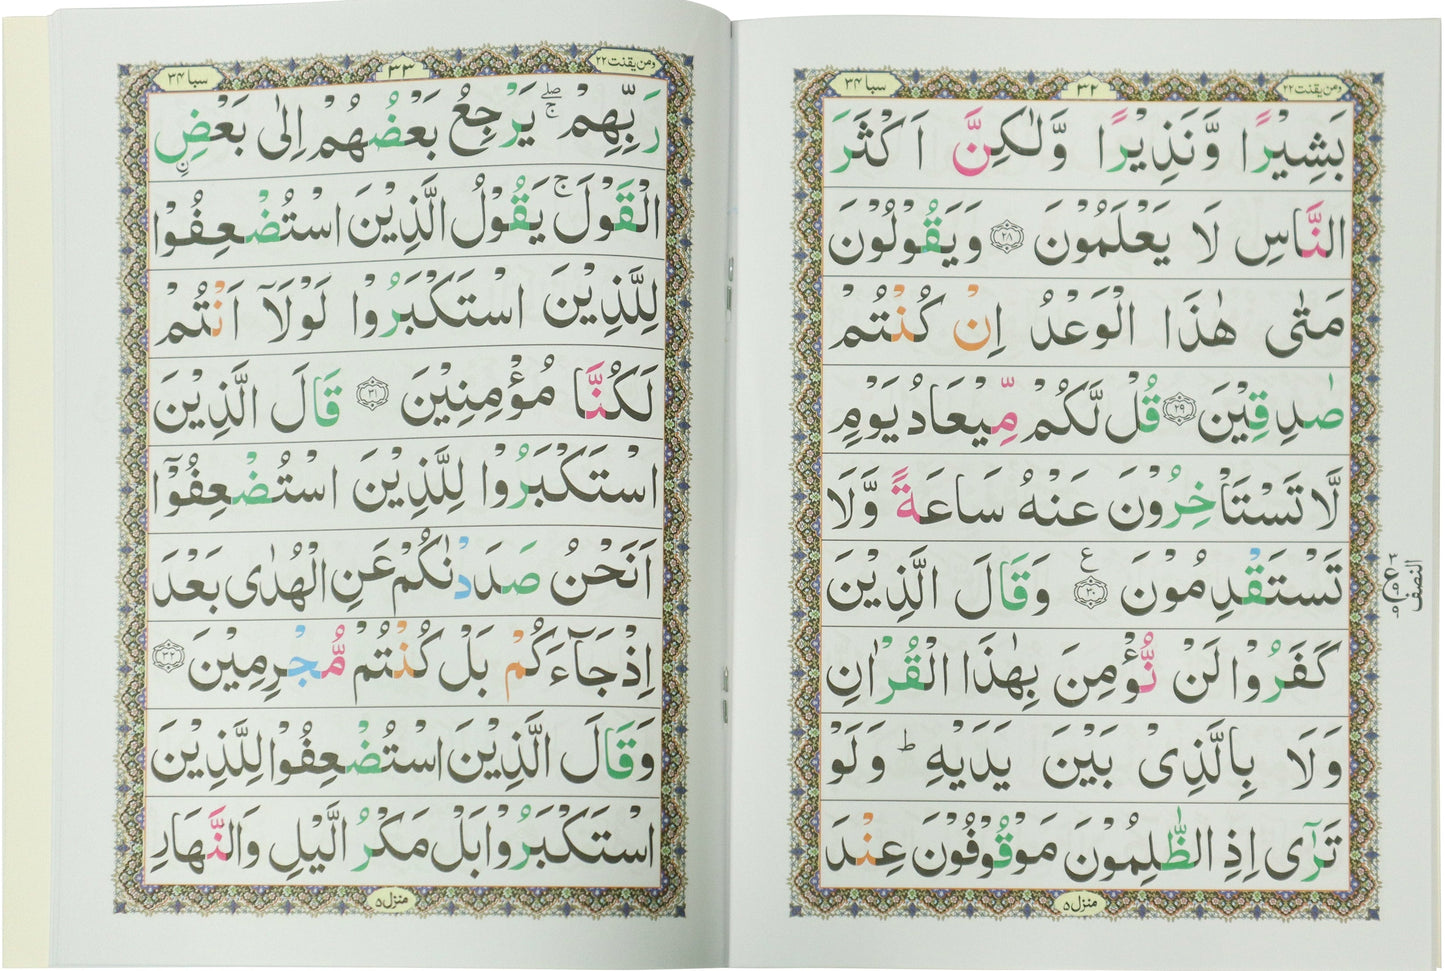 ومن یقنت ۲۲
۳۲
سبا ۳۴
بَشِيْرًا وَّنَذِيْرًا وَّلٰكِنَّ اَكْثَرَ
النَّاسِ لَا يَعْلَمُوْنَ ۝۲۸ وَيَقُوْلُوْنَ
مَتٰى هٰذَا الْوَعْدُ اِنْ كُنْتُمْ
صٰدِقِيْنَ ۝۲۹ قُلْ لَّكُمْ مِّيْعَادُ يَوْمٍ
لَّا تَسْتَاْخِرُوْنَ عَنْهُ سَاعَةً وَّلَا
تَسْتَقْدِمُوْنَ ۝۳۰ ع وَقَالَ الَّذِيْنَ
كَفَرُوْا لَنْ نُّؤْمِنَ بِهٰذَا الْقُرْاٰنِ
وَلَا بِالَّذِىْ بَيْنَ يَدَيْهِ ؕ وَلَوْ
تَرٰٓى اِذِ الظّٰلِمُوْنَ مَوْقُوْفُوْنَ عِنْدَ
منزل ۵
النصف
ومن یقنت ۲۲
۳۳
سبا ۳۴
رَبِّهِمْ ۖۚ يَرْجِعُ بَعْضُهُمْ اِلٰى بَعْضِ ۨ
الْقَوْلَ ۚ يَقُوْلُ الَّذِيْنَ اسْتُضْعِفُوْا
لِلَّذِيْنَ اسْتَكْبَرُوْا لَوْلَاۤ اَنْتُمْ
لَكُنَّا مُؤْمِنِيْنَ ۝۳۱ قَالَ الَّذِيْنَ
اسْتَكْبَرُوْا لِلَّذِيْنَ اسْتُضْعِفُوْۤا
اَنَحْنُ صَدَدْنٰكُمْ عَنِ الْهُدٰى بَعْدَ
اِذْ جَآءَكُمْ بَلْ كُنْتُمْ مُّجْرِمِيْنَ ۝۳۲
وَقَالَ الَّذِيْنَ اسْتُضْعِفُوْا لِلَّذِيْنَ
اسْتَكْبَرُوْا بَلْ مَكْرُ الَّيْلِ وَالنَّهَارِ
منزل ۵